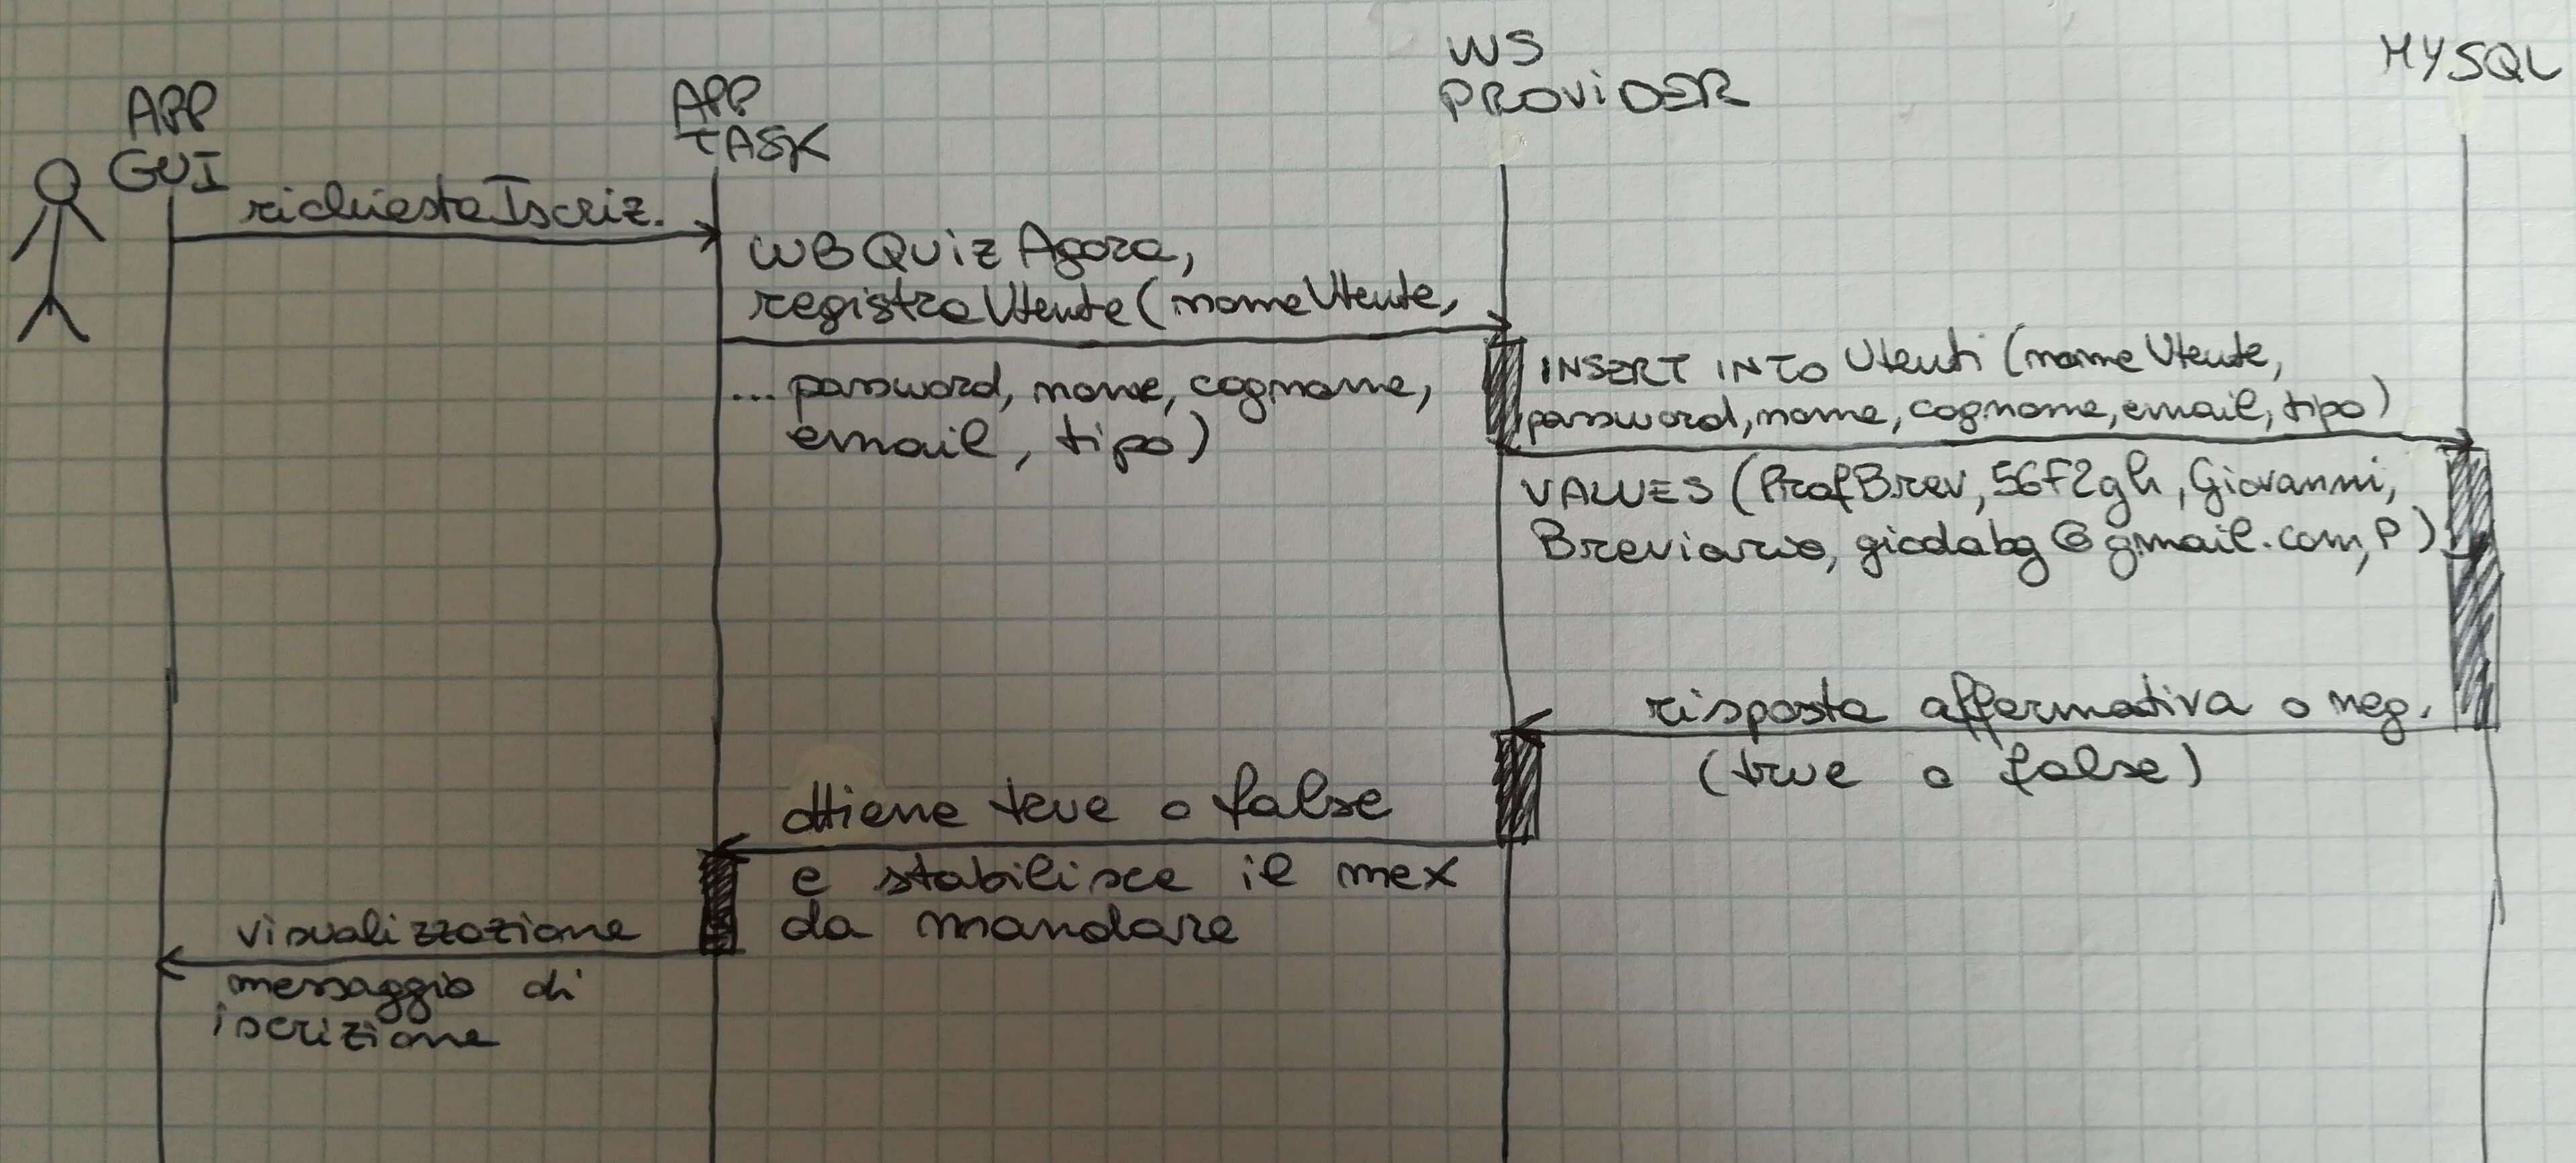 APP
GUI
APP
TASK
WS
PROVIDER
MYSQL
richiestaIscriz.
WB QUiz Agora,
registraUtente (nomeUtente,
... password, nome, cognome,
email, tipo)
INSERT INTO Utenti (nomeUtente,
password, nome, cognome, email, tipo)
VALUES (ProfBrev, 56F2gh, Giovanni,
Breviario, giodabg@gmail.com, P)
risposta affermativa o neg.
(true o false)
ottiene true o false
e stabilisce il mex
da mandare
visualizzazione
messaggio di
iscrizione